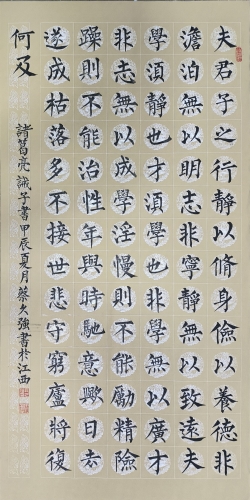 夫君子之行靜以脩身儉以養德非
澹泊無以明志非寧靜無以致遠夫
學須靜也才須學也非學無以廣才
非志無以成學淫慢則不能勵精險
躁則不能治性年與時馳意歟日去
遂成枯落多不接世悲守窮廬將復
何及
諸葛亮誡子書甲辰夏月蔡久強書於江西